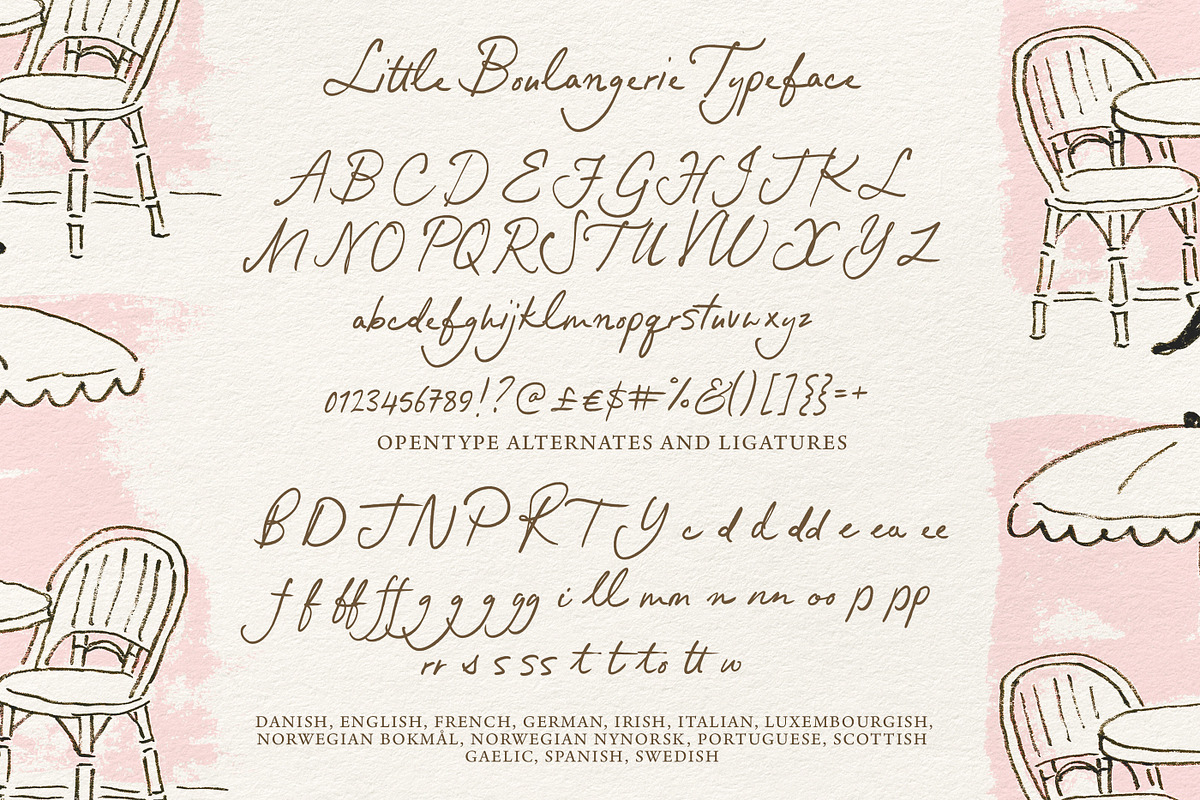 Little Boulangerie Typeface
A B C D E F G H I J K L
M N O P Q R S T U V W X Y Z
abcdefghijklmnopqrstuvwxyz
0123456789!?@£€$#%&()[]{}=+
OPENTYPE ALTERNATES AND LIGATURES
B D J N P R T Y c d d dd e ea ee
f f ff ff g g g gg i ll mm n nn oo p pp
rr s s ss t t to tt w
DANISH, ENGLISH, FRENCH, GERMAN, IRISH, ITALIAN, LUXEMBOURGISH,
NORWEGIAN BOKMÅL, NORWEGIAN NYNORSK, PORTUGUESE, SCOTTISH
GAELIC, SPANISH, SWEDISH